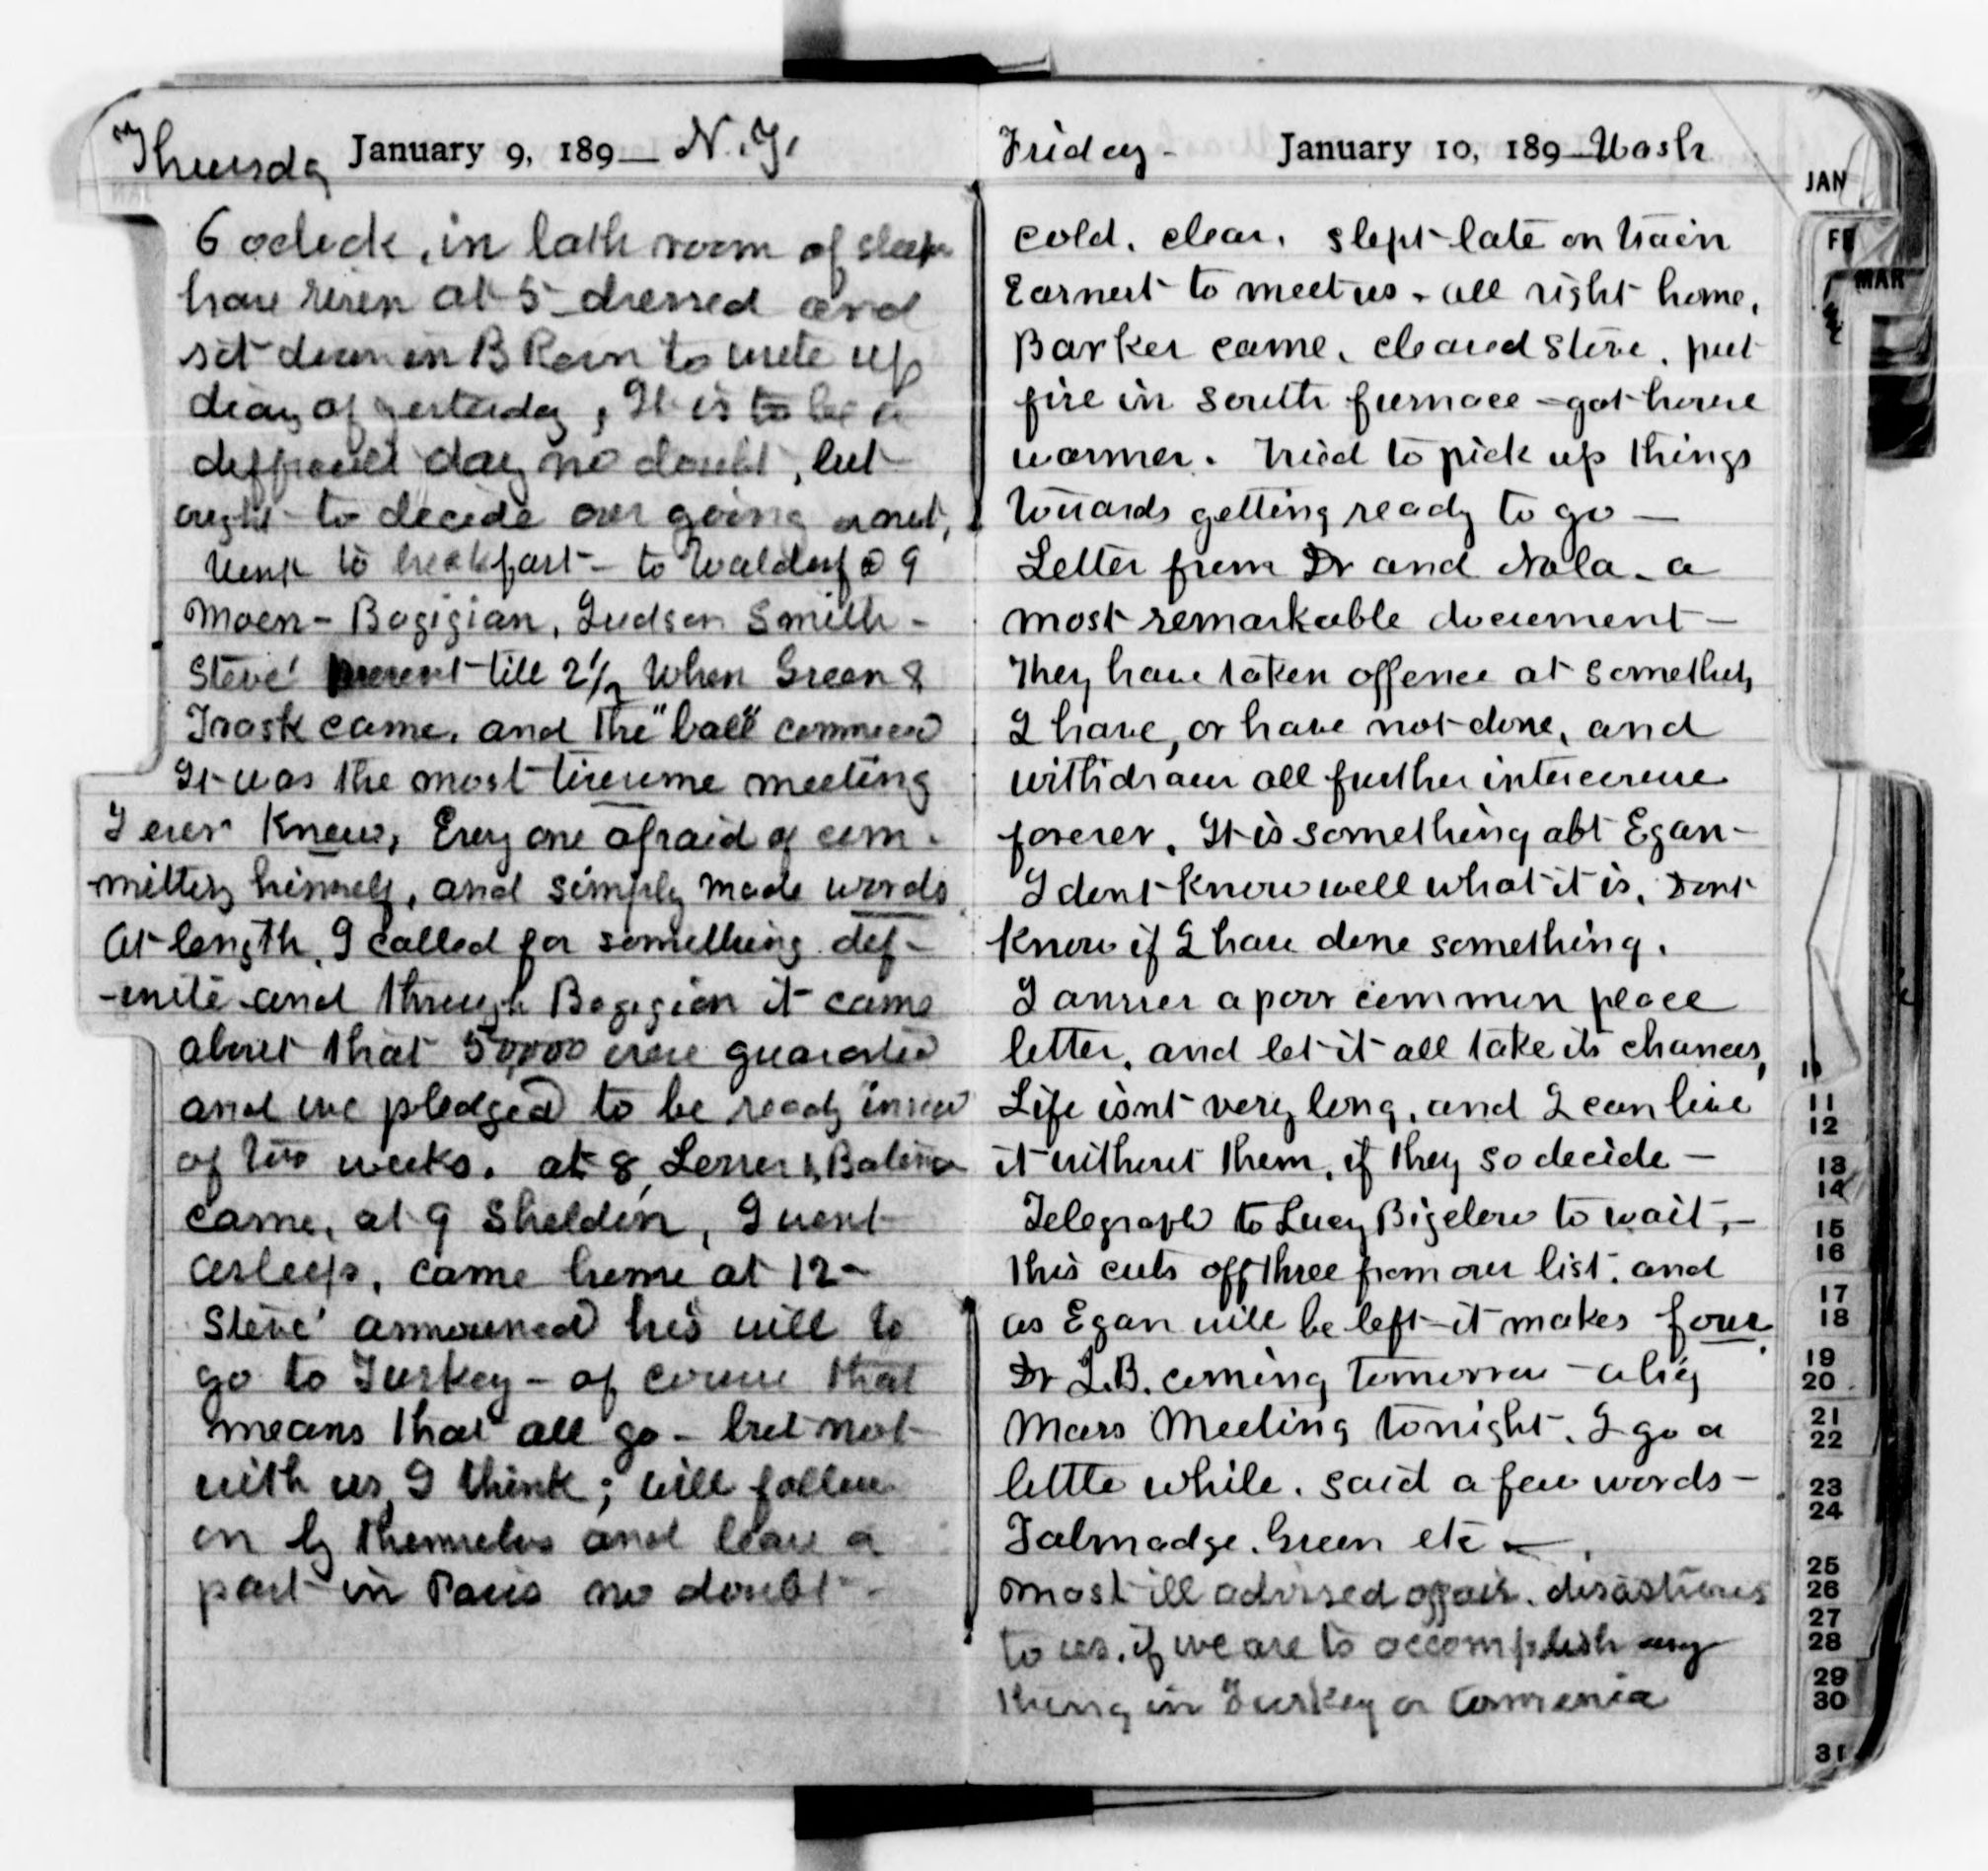 Thursday January 9, 189_ N.Y.
6 oclock, in bath room of sleep
have risen at 5 dressed and
sit down in B Room to write up
diary of yesterday, It is to be a
difficult day no doubt, but
ought to decide our going or not,
Went to breakfast - to Waldorf @ 9
Moen - Bogigian, Judson Smith -
Steve' present till 2 1/2 When Green &
Trask came, and the "ball" commced
It was the most tiresome meeting
I ever knew, Every one afraid of com-
-mitting himself, and simply made words
At length, I called for something def-
-inite and through Bogigian it came
about that 50,000 were guaranteed
and we pledged to be ready inside
of two weeks. at 8,
came, at 9 Sheldon, I went
asleep, came home at 12 -
Steve' announced his will to
go to Turkey - of course that
means that all go - but not
with us I think; will follow
on by themselves and leave a
part in Paris no doubt -
Friday - January 10, 189_ Wash
cold, clear, slept late on train
Earnest to meet us - all right home,
Barker came, cleared stove, put
fire in south furnace - got house
warmer. Tried to pick up things
towards getting ready to go -
Letter from Dr and Nola - a
most remarkable document -
They have taken offence at something
I have, or have not done, and
withdraw all further intercourse
forever. It is something abt Egan -
I dont know well what it is, Dont
know if I have done something.
I answer a poor common place
letter, and let it all take its chances,
Life isnt very long, and I can live
it without them, if they so decide -
Telegraph to Lucy Bigelow to wait, -
this cuts off three from our list, and
as Egan will be left it makes four.
Dr L.B. coming tomorrow - a big
Mass Meeting tonight, I go a
little while, said a few words -
Talmadge, Green etc -
most ill advised affair, disastrous
to us, if we are to accomplish any
thing in Turkey or Armenia
JAN
MAR
11
12
13
14
15
16
17
18
19
20
21
22
23
24
25
26
27
28
29
30
31